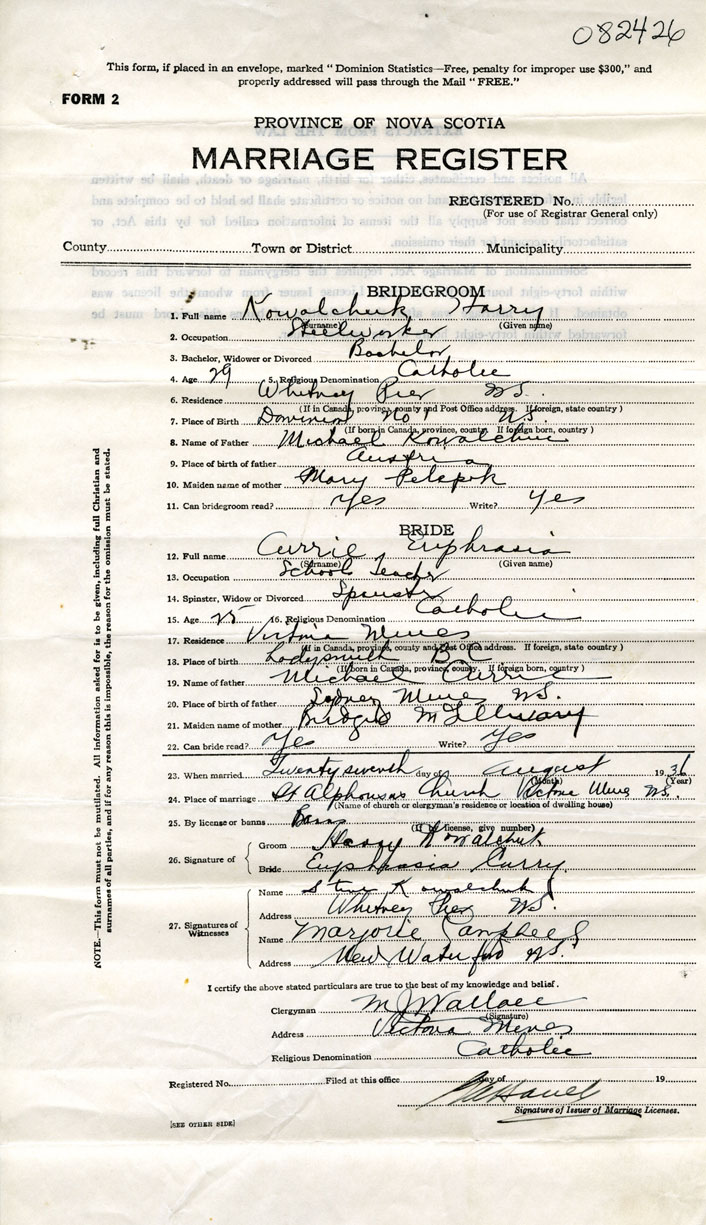 082426
This form, if placed in an envelope, marked "Dominion Statistics—Free, penalty for improper use $300," and
properly addressed will pass through the Mail "FREE."
FORM 2
PROVINCE OF NOVA SCOTIA
MARRIAGE REGISTER
REGISTERED No.
(For use of Registrar General only)
County Town or District Municipality
BRIDEGROOM
1. Full name Kowalchuk Harry
(Surname) (Given name)
2. Occupation Steelworker
3. Bachelor, Widower or Divorced Bachelor
4. Age 29 5. Religious Denomination Catholic
6. Residence Whitney Pier N.S.
(If in Canada, province, county and Post Office address. If foreign, state country)
7. Place of Birth Dominion No 1 NS
(If born in Canada, province, county. If foreign born, country)
8. Name of Father Michael Kowalchuk
9. Place of birth of father Austria
10. Maiden name of mother Mary
11. Can bridegroom read? Yes Write? Yes
BRIDE
12. Full name Currie Euphrasia
(Surname) (Given name)
13. Occupation School Teacher
14. Spinster, Widow or Divorced Spinster
15. Age 25 16. Religious Denomination Catholic
17. Residence Victoria Mines
(If in Canada, province, county and Post Office address. If foreign, state country)
18. Place of birth Ladysmith B.C.
(If born in Canada, province, county. If foreign born, country)
19. Name of father Michael Currie
20. Place of birth of father Sydney Mines N.S.
21. Maiden name of mother Bridget
22. Can bride read? Yes Write? Yes
23. When married Twenty seventh day of August 1936
(Month) (Year)
24. Place of marriage St Alphonsus Church Victoria Mines N.S.
(Name of church or clergyman's residence or location of dwelling house)
25. By license or banns Banns
(If by license, give number)
26. Signature of
Groom Harry Kowalchuk
Bride Euphrasia Curry
27. Signatures of Witnesses
Name Steve Kowalchuk
Address Whitney Pier N.S.
Name Marjorie Campbell
Address New Waterford N.S.
I certify the above stated particulars are true to the best of my knowledge and belief.
Clergyman M J Wallace
(Signature)
Address Victoria Mines
Religious Denomination Catholic
Registered No. Filed at this office day of 19
Signature of Issuer of Marriage Licenses.
[SEE OTHER SIDE]
NOTE.—This form must not be mutilated. All information asked for is to be given, including full Christian and
surnames of all parties, and if for any reason this is impossible, the reason for the omission must be stated.